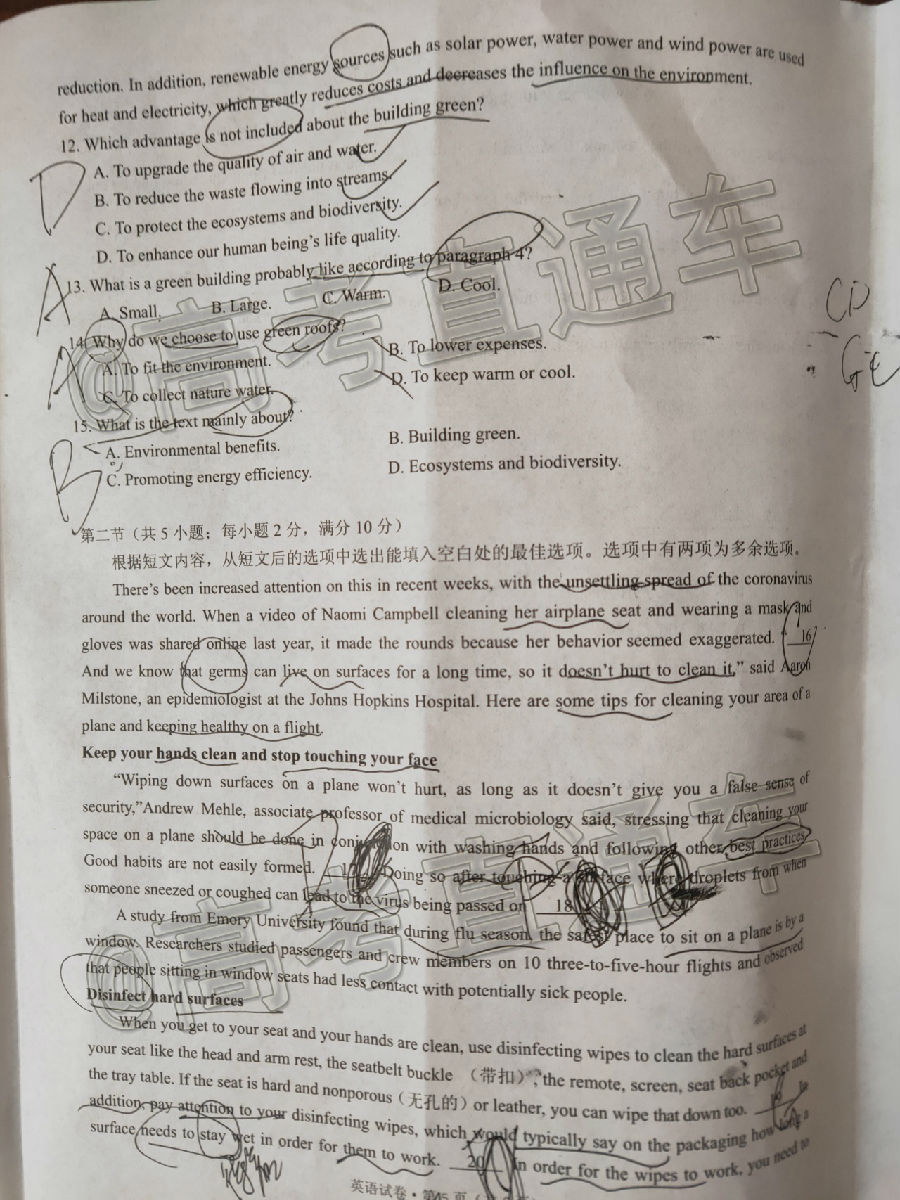 reduction. In addition, renewable energy sources such as solar power, water power and wind power are used
for heat and electricity, which greatly reduces costs and decreases the influence on the environment.
12. Which advantage is not included about the building green?
A. To upgrade the quality of air and water.
B. To reduce the waste flowing into streams.
C. To protect the ecosystems and biodiversity.
D. To enhance our human being's life quality.
D
13. What is a green building probably like according to paragraph 4?
A. Small. B. Large. C. Warm. D. Cool.
A
14. Why do we choose to use green roofs?
A. To fit the environment. B. To lower expenses.
C. To collect nature water. D. To keep warm or cool.
A
15. What is the text mainly about?
A. Environmental benefits. B. Building green.
C. Promoting energy efficiency. D. Ecosystems and biodiversity.
B
CD
GE
@高考直通车
第二节（共 5 小题；每小题 2 分，满分 10 分）
根据短文内容，从短文后的选项中选出能填入空白处的最佳选项。选项中有两项为多余选项。
There's been increased attention on this in recent weeks, with the unsettling spread of the coronavirus
around the world. When a video of Naomi Campbell cleaning her airplane seat and wearing a mask and
gloves was shared online last year, it made the rounds because her behavior seemed exaggerated. " 16
And we know that germs can live on surfaces for a long time, so it doesn't hurt to clean it," said Aaron
Milstone, an epidemiologist at the Johns Hopkins Hospital. Here are some tips for cleaning your area of a
plane and keeping healthy on a flight.
Keep your hands clean and stop touching your face
"Wiping down surfaces on a plane won't hurt, as long as it doesn't give you a false sense of
security,"Andrew Mehle, associate professor of medical microbiology said, stressing that cleaning your
space on a plane should be done in conjunction with washing hands and following other best practices.
Good habits are not easily formed. Doing so after touching a surface where droplets from when
someone sneezed or coughed can lead to the virus being passed on. 18
A study from Emory University found that during flu season, the safest place to sit on a plane is by a
window. Researchers studied passengers and crew members on 10 three-to-five-hour flights and observed
that people sitting in window seats had less contact with potentially sick people.
@高考直通车
Disinfect hard surfaces
When you get to your seat and your hands are clean, use disinfecting wipes to clean the hard surfaces at
your seat like the head and arm rest, the seatbelt buckle （带扣）, the remote, screen, seat back pocket and
the tray table. If the seat is hard and nonporous（无孔的）or leather, you can wipe that down too. In
addition, pay attention to your disinfecting wipes, which would typically say on the packaging how long a
surface needs to stay wet in order for them to work. 20 In order for the wipes to work, you need to
英语试卷・第 5 页